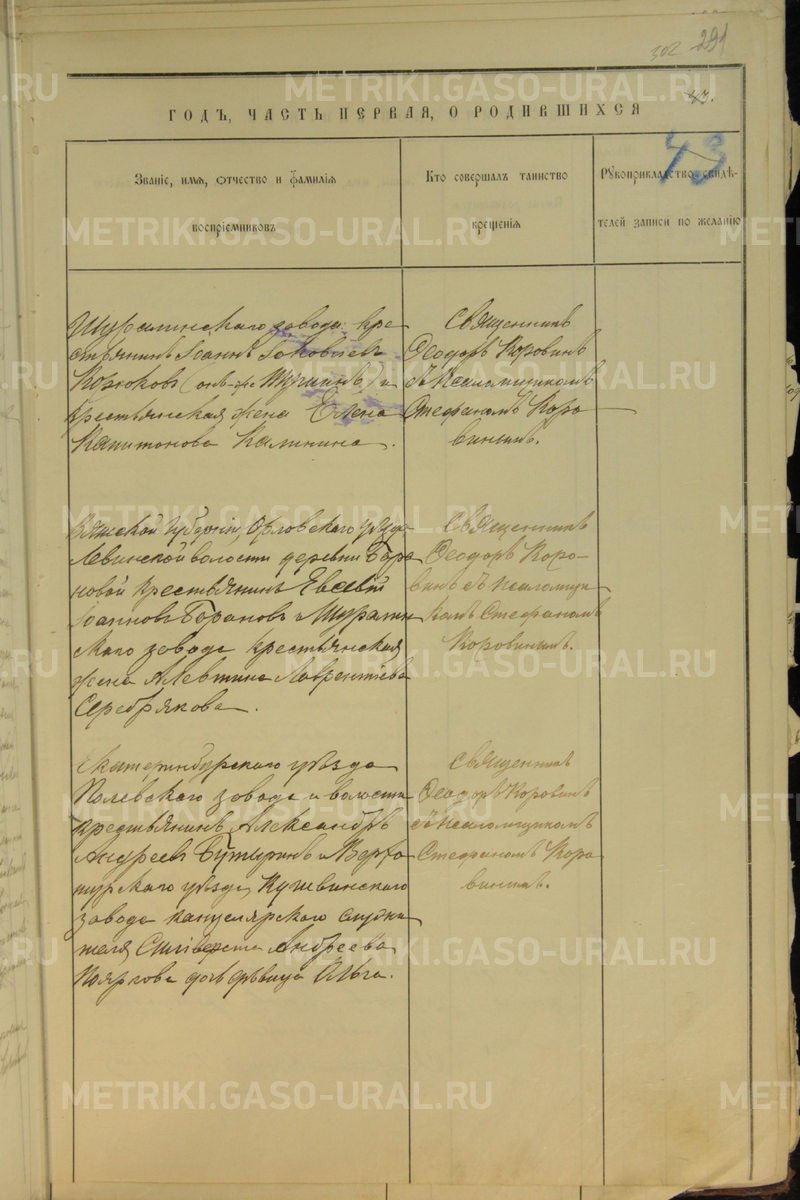 302 291
43.
ГОДЪ, ЧАСТЬ ПЕРВАЯ, О РОДИВШИХСЯ
43
Званіе, имя, отчество и фамилія
воспріемниковъ
Кто совершалъ таинство
крещенія
Рукоприкладство свидѣ-
телей записи по желанію
Шуралинскаго завода кре-
стьянинъ Іоаннъ Іаковлевъ
и
крестьянская жена Елена
Капитонова Калинина.
Священникъ
Ѳеодоръ Коровинъ
съ Псаломщикомъ
Стефаномъ Коро
винымъ.
Вятской губерніи, Орловскаго уѣзда
Левинской волости деревни Бара
новой крестьянинъ Евсевій
Іоанновъ Барановъ и Шуралин
скаго завода крестьянская
жена Алевтина Лаврентіева
Серебрякова.
Священникъ
Ѳеодоръ Коро-
винъ съ Псаломщи
комъ Стефаномъ
Коровинымъ.
Екатеринбургскаго уѣзда
Полевскаго завода и волости
крестьянинъ Александръ
Андреевъ Бутыринъ и Верхо
турскаго уѣзда, Кушвинскаго
завода канцелярскаго служи
теля Андреева
Пояркова дочь дѣвица Ольга.
Священникъ
Ѳеодоръ Коровинъ
съ Псаломщикомъ
Стефаномъ Коро
винымъ.
METRIKI.GASO-URAL.RU